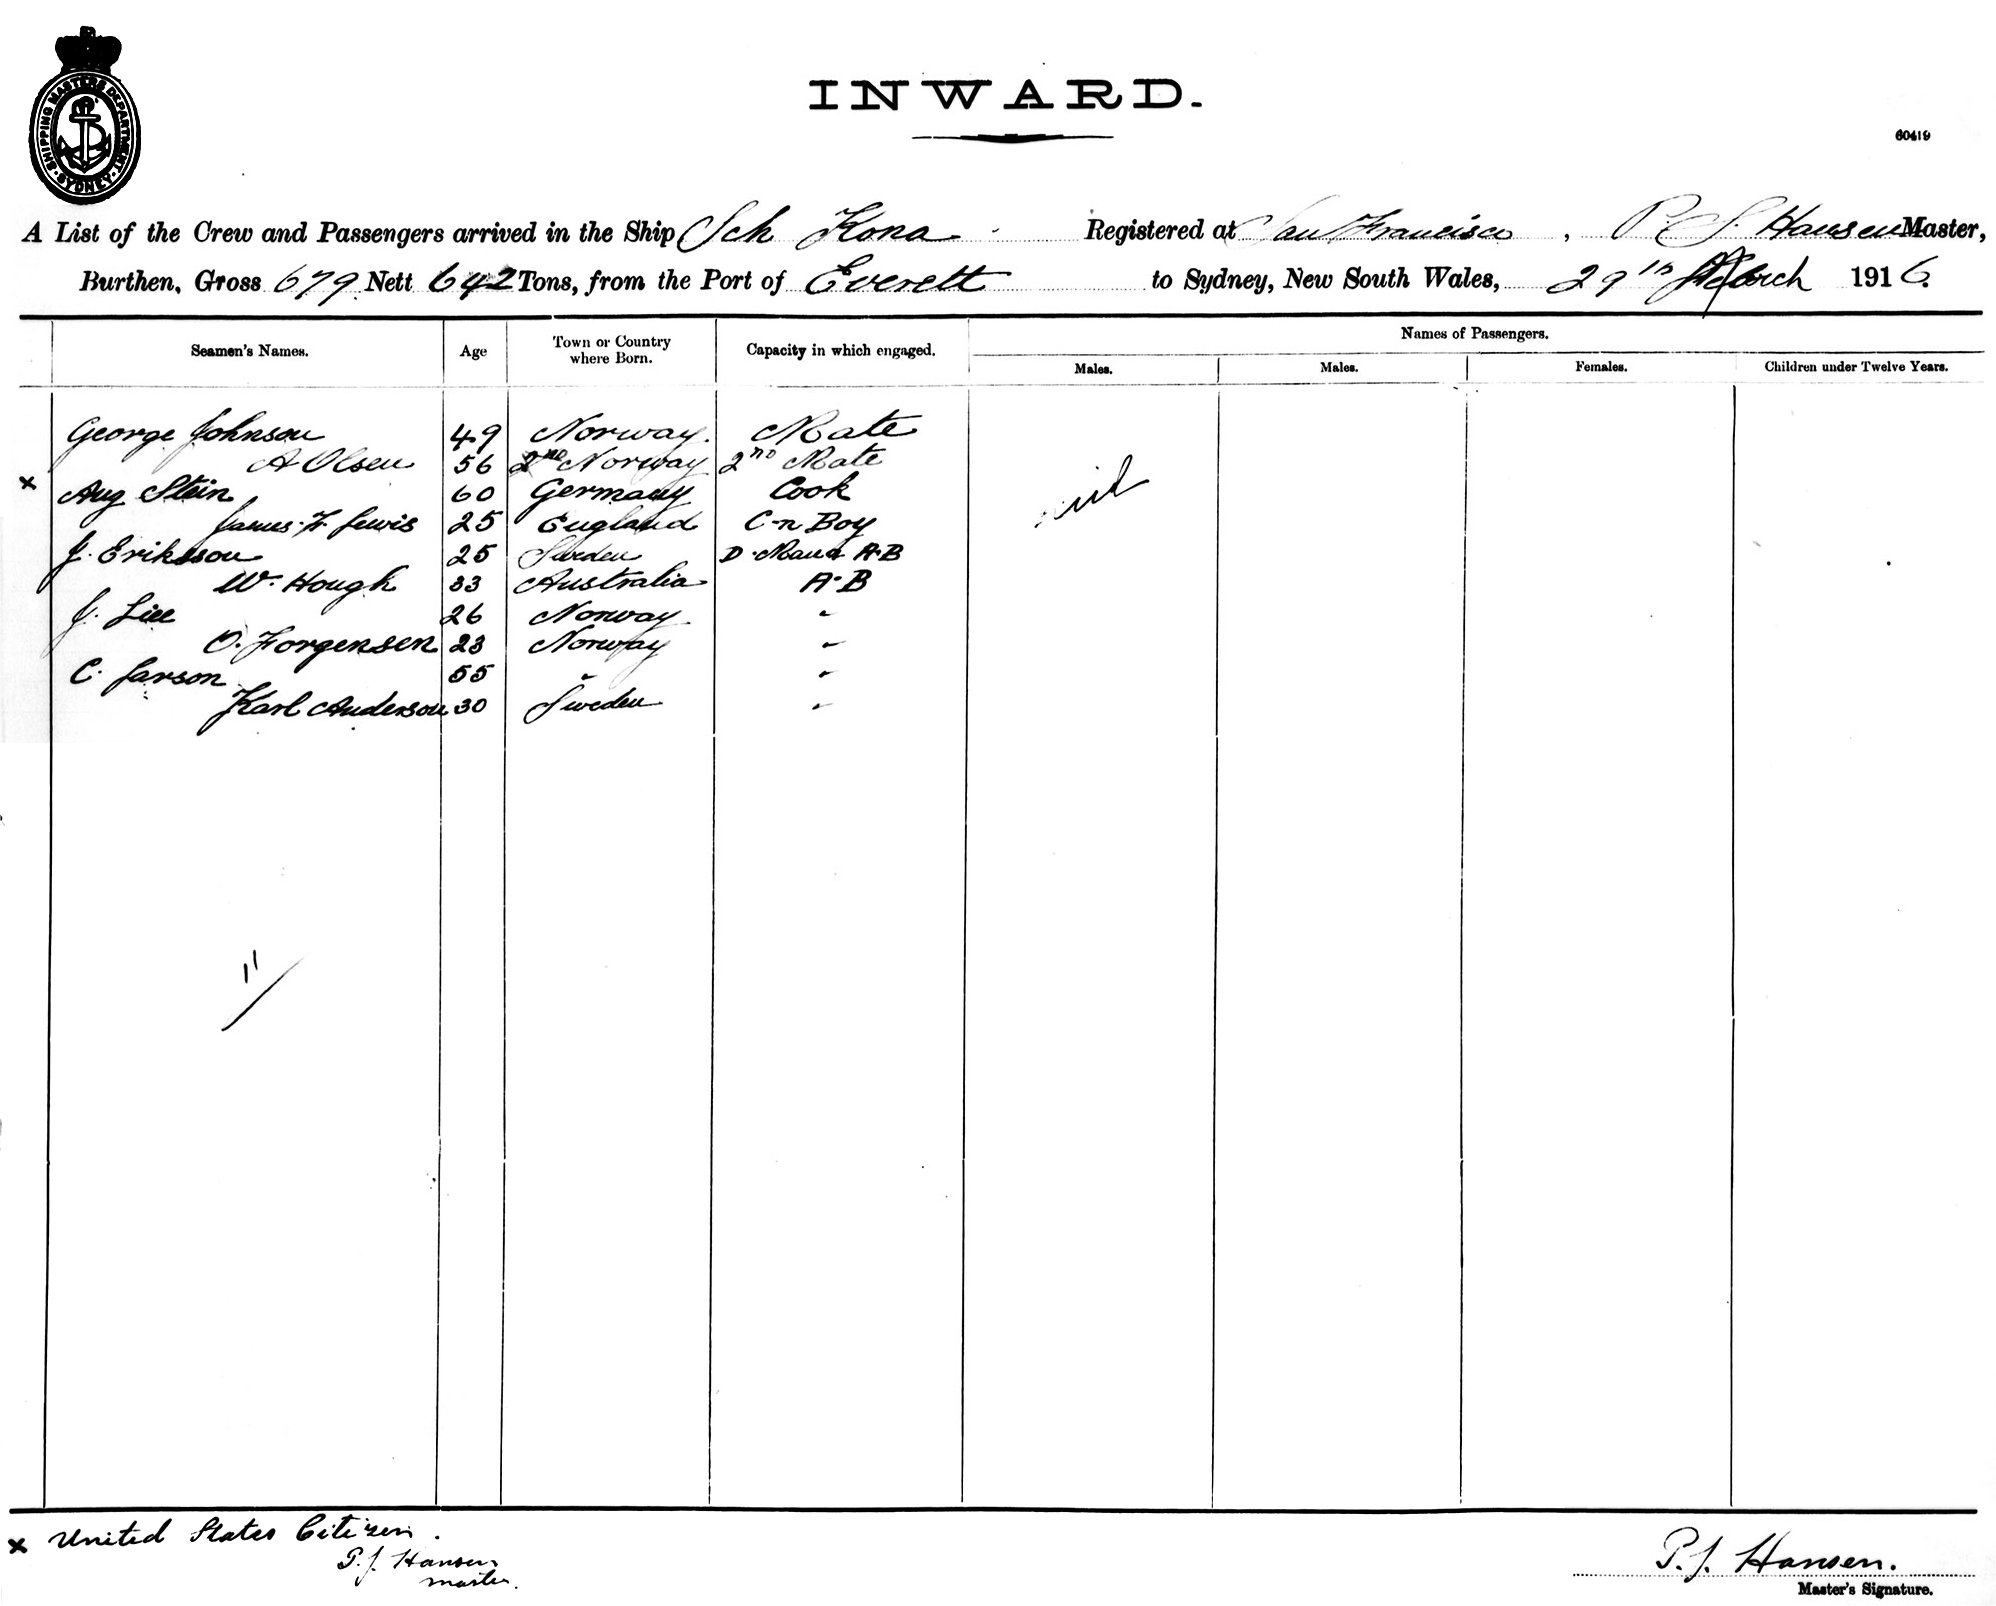 SHIPPING MASTERS DEPARTMENT
SYDNEY
INWARD.
60419
A List of the Crew and Passengers arrived in the Ship Sch Kona Registered at San Francisco, P. J. Hansen Master,
Burthen, Gross 679 Nett 642 Tons, from the Port of Everett to Sydney, New South Wales, 29th March 1916.
Names of Passengers.
Seamen's Names. Age Town or Country where Born. Capacity in which engaged. Males. Males. Females. Children under Twelve Years.
George Johnson 49 Norway. Mate
A Olsen 56 2nd Norway 2nd Mate
x Aug Stein 60 Germany Cook nil
James. F. Lewis 25 England C-n Boy
J. Eriksson 25 Sweden D. Man & A-B
W. Hough 33 Australia A-B
J. Lie 26 Norway "
O. Jorgensen 23 Norway "
C. Larson 55 " "
Karl Anderson 30 Sweden "
11
x United States Citizen.
P. J. Hansen
master.
P. J. Hansen.
Master's Signature.